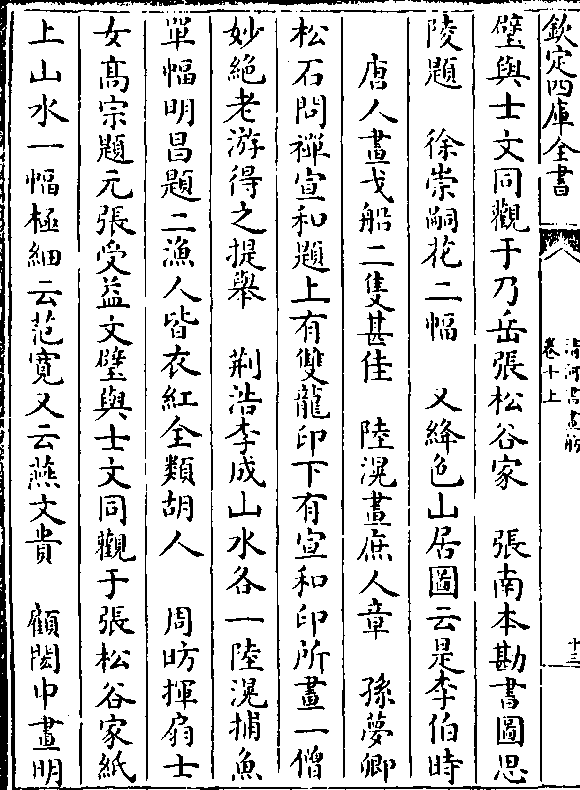 欽定四庫全書
清河書畫舫
卷十上
十三
璧與士文同觀于乃岳張松谷家　張南本勘書圖思
陵題　徐崇嗣花二幅　又絳色山居圖云是李伯時
唐人畫戈船二隻甚佳　陸滉畫庶人章　孫夢卿
松石問禪宣和題上有雙龍印下有宣和印所畫一僧
妙絶老游得之提舉　荆浩李成山水各一陸滉捕魚
單幅明昌題二漁人皆衣紅全類胡人　周昉揮扇士
女髙宗題元張受益文璧與士文同觀于張松谷家紙
上山水一幅極細云范寛又云燕文貴　顧閎中畫明